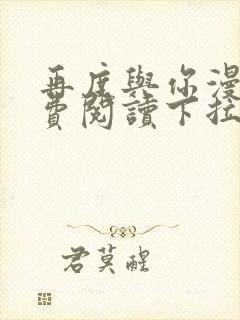 再度與你漫
費閱讀下拉
君莫醒